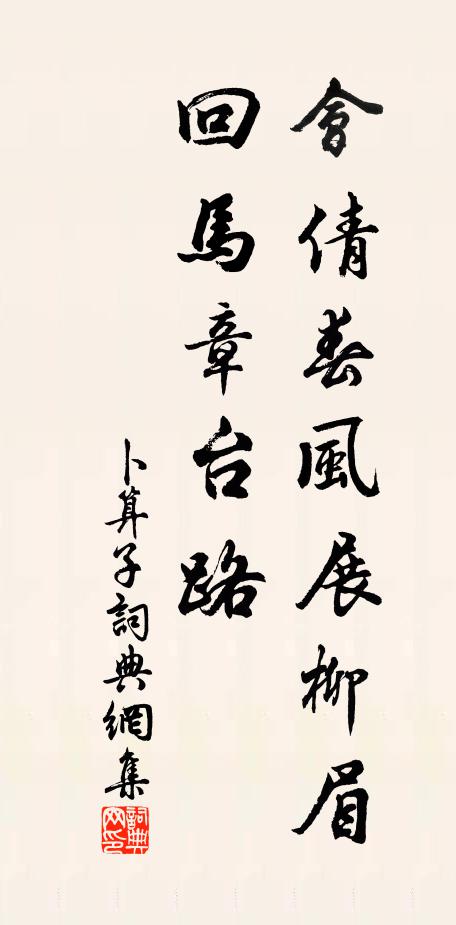 會倩春風展柳眉
回馬章台路
卜算子詞典網集
詞典
网印